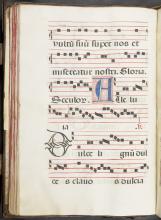 vultū suū super nos et
misereatur nostri. Gloria.
Seculor. Alle lu
ia
Dulce li gnū dul
ces clavos dulcia